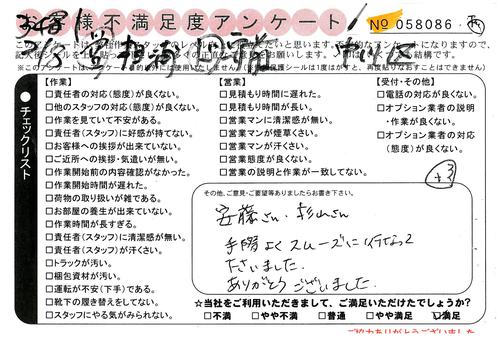 お客様不満足度アンケート
No 058086
【作業】
□責任者の対応(態度)が良くない。
□他のスタッフの対応(態度)が良くない。
□作業を見ていて不安がある。
□責任者(スタッフ)に好感が持てない。
□お客様への挨拶が出来ていない。
□ご近所への挨拶・気遣いが無い。
□作業開始前の内容確認がなかった。
□作業開始時間が遅れた。
□荷物の取り扱いが雑である。
□お部屋の養生が出来ていない。
□作業時間が長すぎる。
□責任者(スタッフ)に清潔感が無い。
□責任者(スタッフ)が汗くさい。
□トラックが汚い。
□梱包資材が汚い。
□運転が不安(下手)である。
□靴下の履き替えをしてない。
□スタッフにやる気がみられない。
【営業】
□見積もりが遅れた。
□見積もり時間が長い。
□営業マンに清潔感が無い。
□営業マンが煙草くさい。
□営業マンが汗くさい。
□営業態度が良くない。
□営業の説明と作業が一致してない。
【受付・その他】
□電話の対応が良くない。
□オプション業者の説明
・作業が良くない。
□オプション業者の対応
(態度)が良くない。
●チェックリスト
その他、ご意見・ご要望等ありましたらお書き下さい。
安藤さん、杉山さん
手際よくスムーズに行なって
下さいました。
ありがとうございました。
☆当社をご利用いただきまして、ご満足いただけたでしょうか?
□不満 □やや不満 □普通 □やや満足 ☑満足
ご協力ありがとうございました